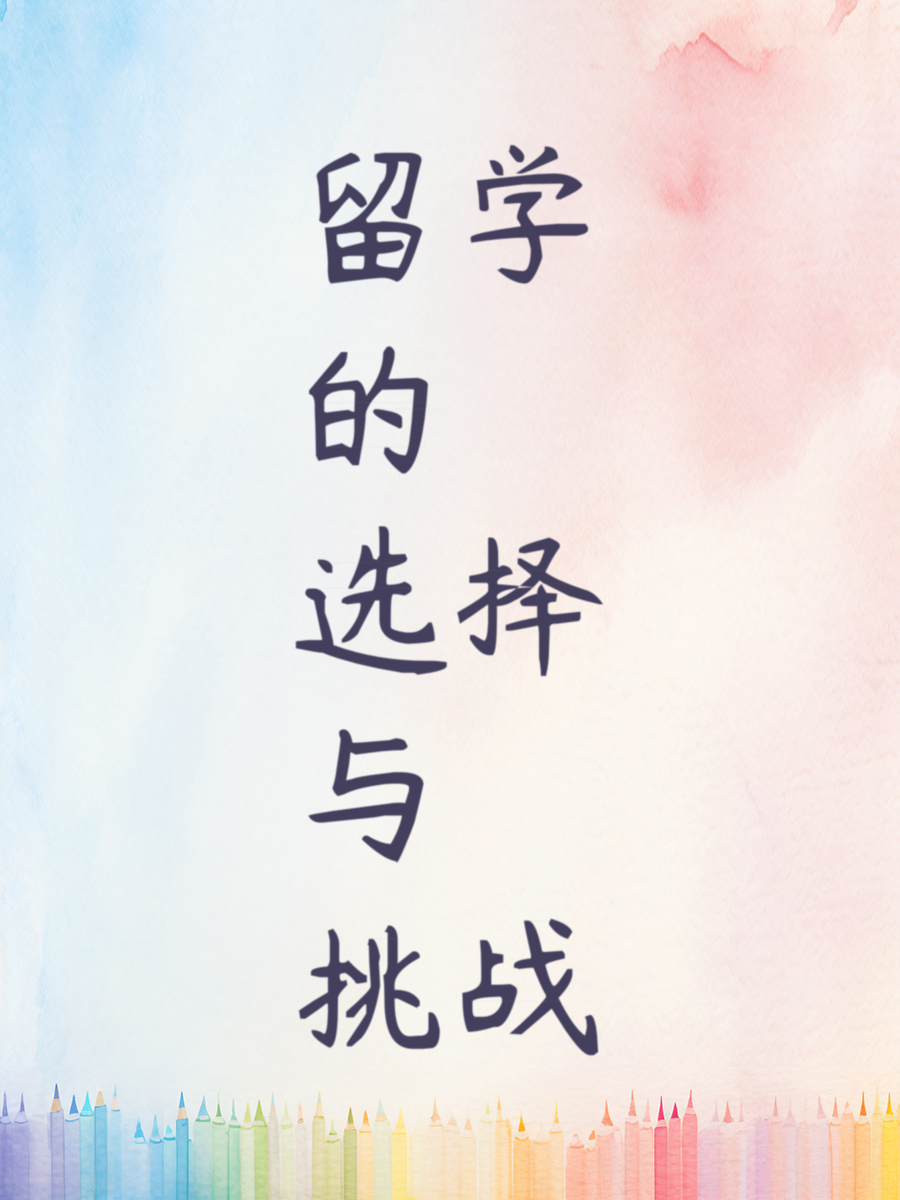 留学
的
选择
与
挑战